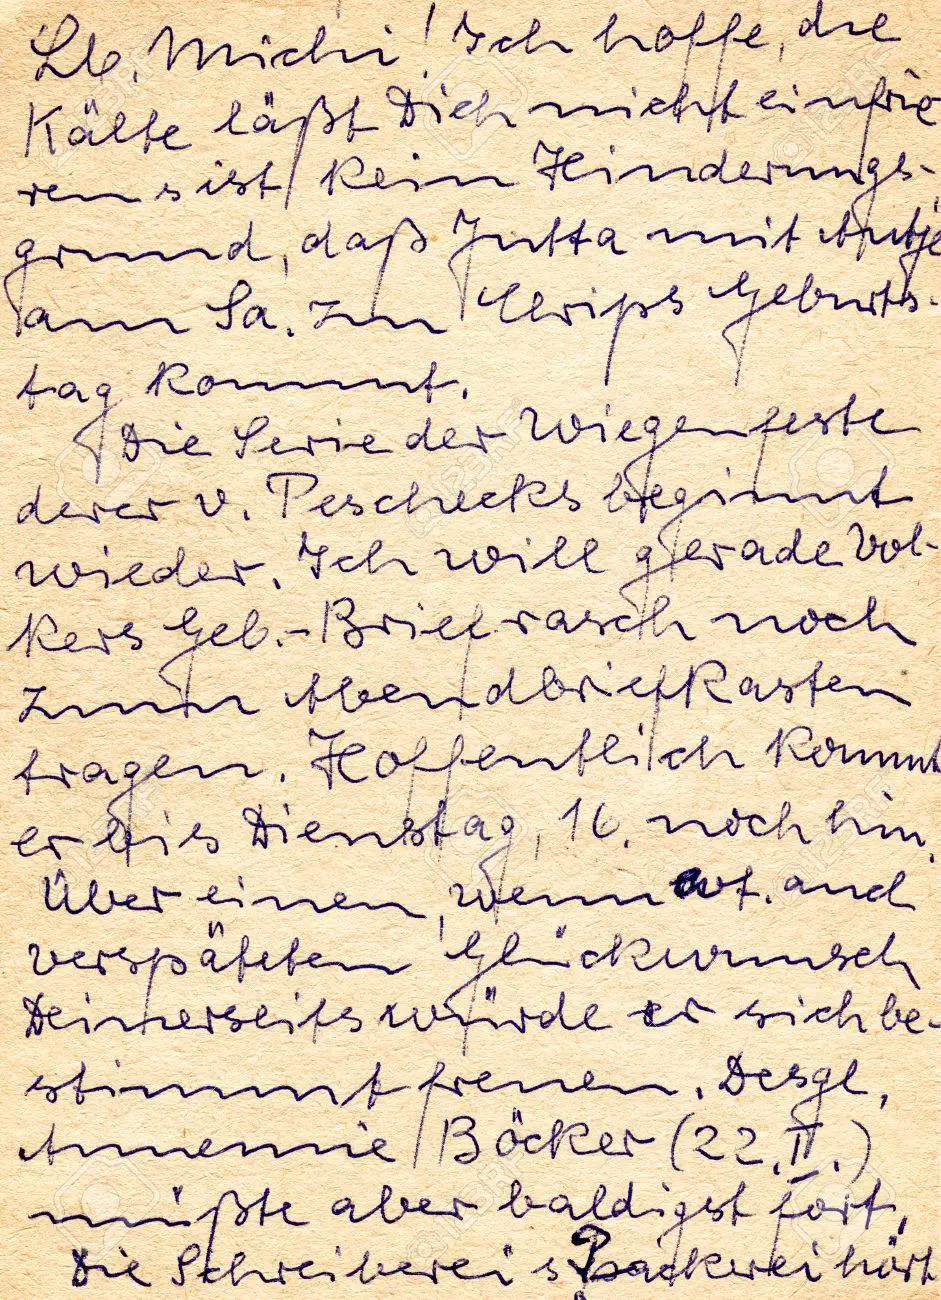 Lb. Michi! Ich hoffe, die
Kälte läßt Dich nicht einfrie
ren s ist kein Hinderungs-
grund, daß Jutta mit Antje
am Sa. zum Chrips Geburts-
tag kommt.
Die Serie der Wiegenfeste
derer v. Peschecks beginnt
wieder. Ich will gerade Vol-
kers Geb.-Brief rasch noch
zum Abendbriefkasten
tragen. Hoffentlich kommt
er bis Dienstag, 16. noch hin.
Über einen, wenn evt. auch
verspäteten Glückwunsch
Deinerseits würde er sich be-
stimmt freuen. Desgl.
Annemie Böcker (22.II.)
müßte aber baldigst fort.
Die Schreiberei s Packerei hört